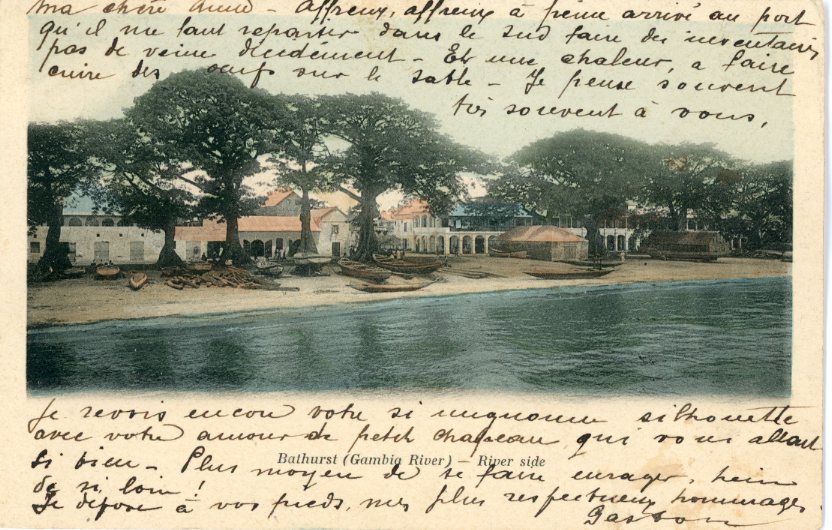 ma chère Anne - Affreux, affreux à peine arrivé au port
qu'il me faut repartir dans le sud faire des inventaires
pas de veine décidément - Et une chaleur, a faire
cuire des oeufs sur le sable - Je pense souvent
très souvent à vous,
Je revois encore votre si mignonne silhouette
avec votre amour de petit chapeau qui vous allait
si bien - Plus moyen de se faire enrager, hein
Bathurst (Gambia River) — River side
de si loin!
Je dépose à vos pieds, mes plus respectueux hommages
Gaston